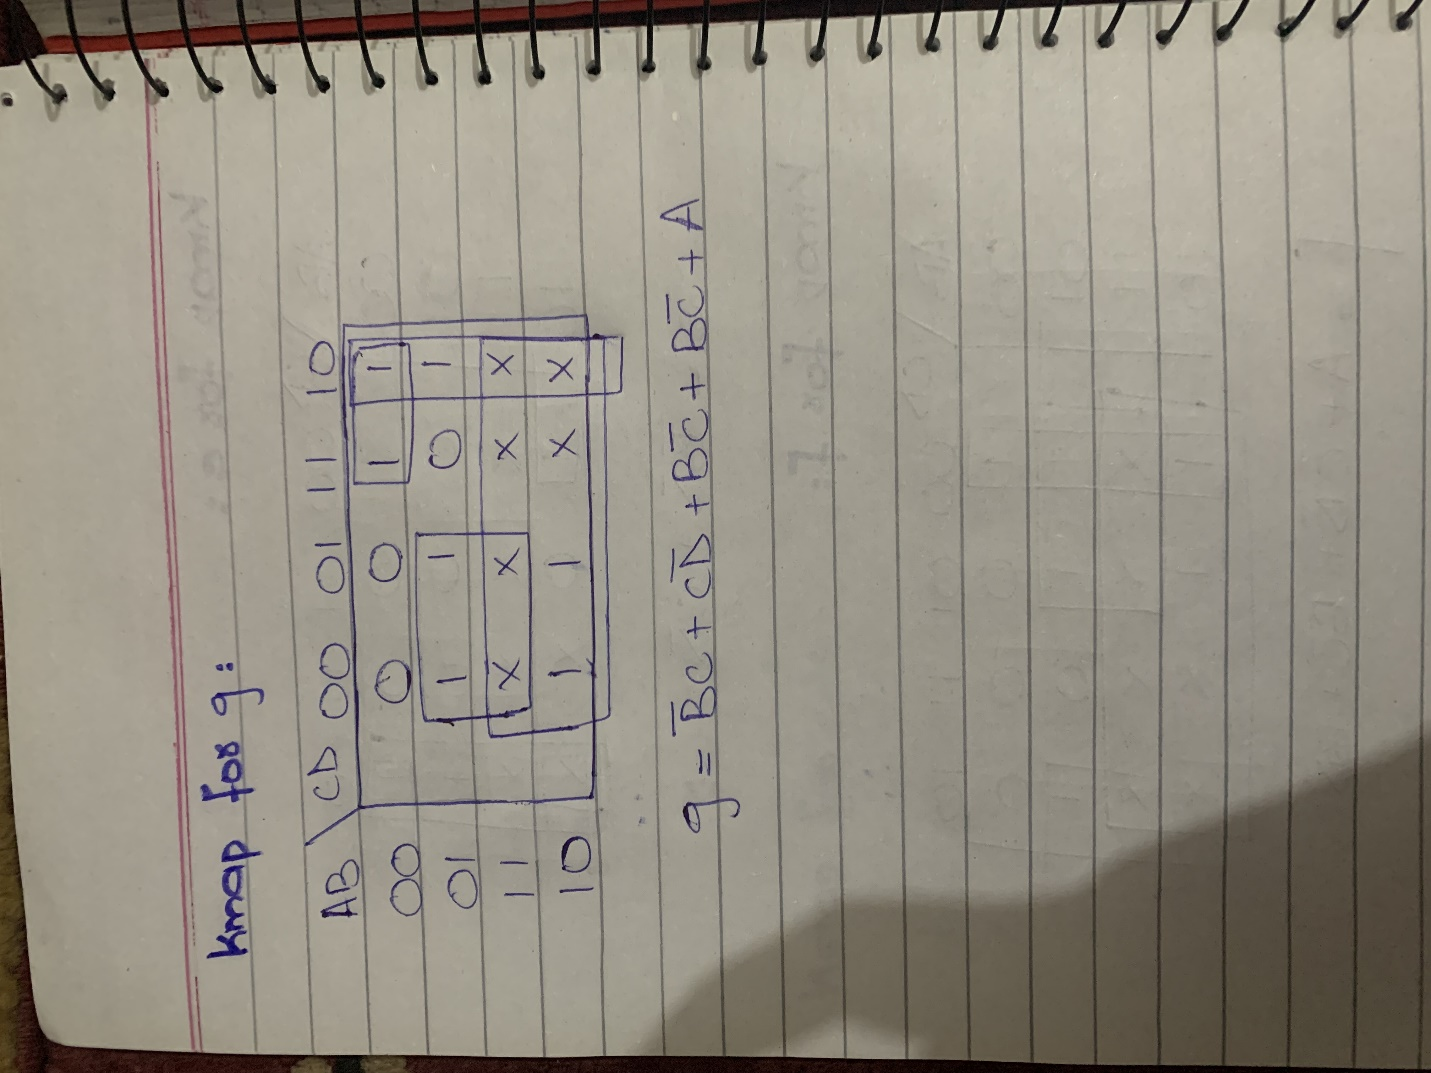 kmap for g:
AB CD 00 01 11 10
00 0 0 1 1
01 1 1 0 1
11 X X X X
10 1 1 X X
g = B̅C + CD̅ + BC̅ + BC̅ + A